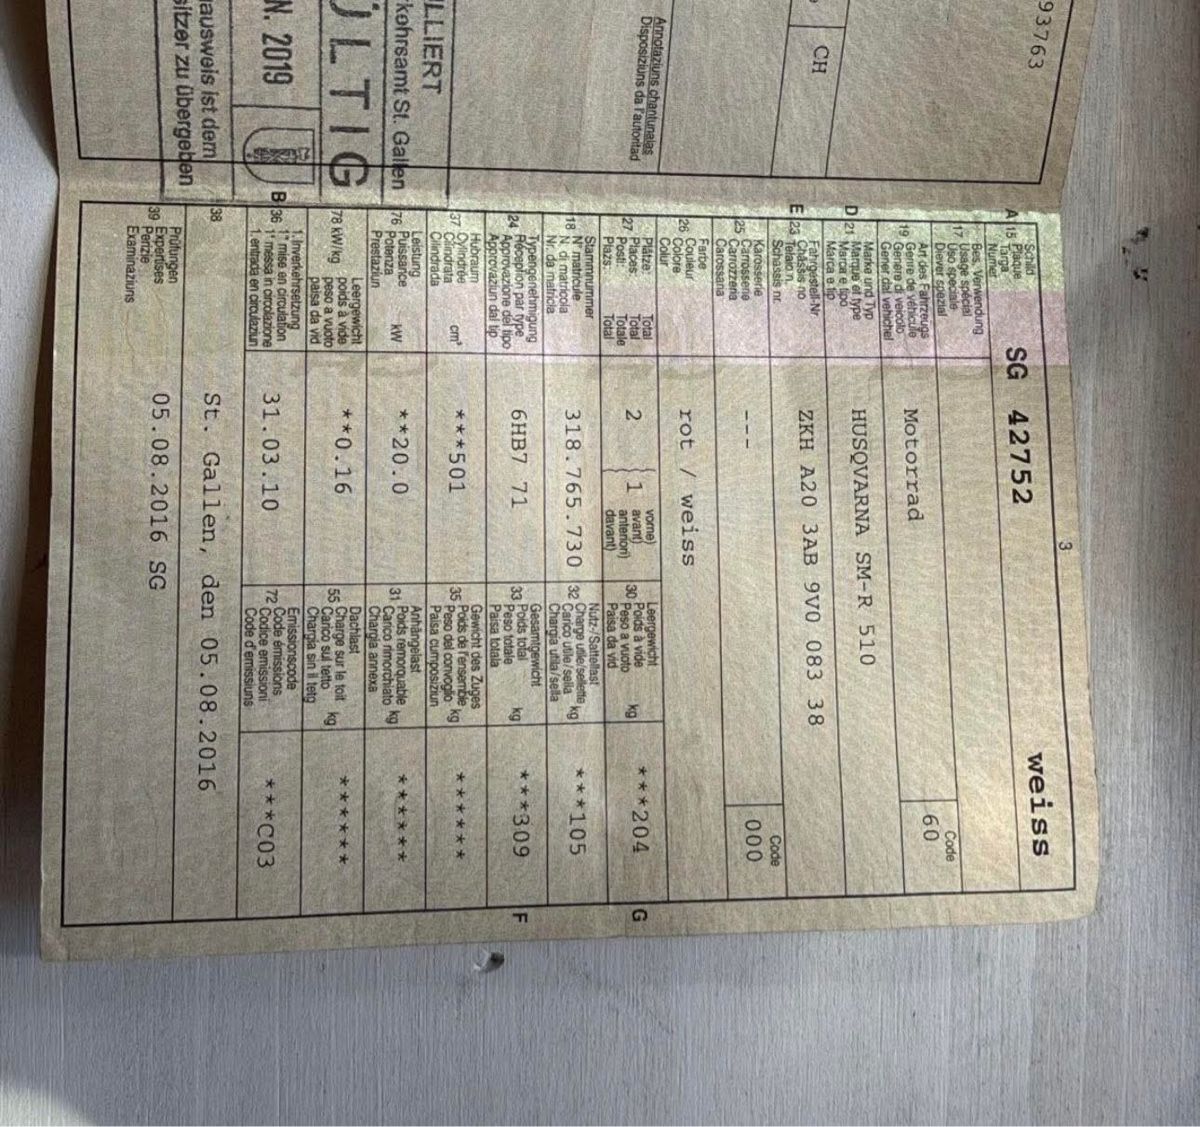 93763
CH
Annotaziuns chantunalas
Disposiziuns da l'autoritad
LLIERT
kehrsamt St. Gallen
ÜLTIG
N. 2019
ausweis ist dem
sitzer zu übergeben
3
weiss
A 15
Schild
Plaque
Targa
Numer
SG 42752
17
Bes. Verwendung
Usage spécial
Uso speciale
Diever spezial
19
Art des Fahrzeugs
Genre de véhicule
Genere di veicolo
Gener dal vehichel
Motorrad
Code
60
D 21
Marke und Typ
Marque et type
Marca e tipo
Marca e tip
HUSQVARNA SM-R 510
E 23
Fahrgestell-Nr
Châssis no
Telaio n.
Schassis nr.
ZKH A20 3AB 9V0 083 38
25
Karosserie
Carrosserie
Carrozzeria
Carossaria
---
Code
000
26
Farbe
Couleur
Colore
Colur
rot / weiss
27
Plätze: Total
Places: Total
Posti: Totale
Plazs: Total
2
1
vorne)
avant)
anteriori)
davant)
30
Leergewicht
Poids à vide
Peso a vuoto
Paisa da vid
kg
***204
G
18
Stammnummer
N° matricule
N. di matricola
Nr. da matricla
318.765.730
32
Nutz-/Sattellast
Charge utile/sellette
Carico utile/sella
Chargia utila/sella
kg
***105
24
Typengenehmigung
Réception par type
Approvazione del tipo
Approvaziun dal tip
6HB7 71
33
Gesamtgewicht
Poids total
Peso totale
Paisa totala
kg
***309
F
37
Hubraum
Cylindrée
Cilindrata
Cilindrada
cm³
***501
35
Gewicht des Zuges
Poids de l'ensemble
Peso del convoglio
Paisa cumposiziun
kg
******
76
Leistung
Puissance
Potenza
Prestaziun
kW
**20.0
31
Anhängelast
Poids remorquable
Carico rimorchiato
Chargia annexa
kg
******
78 kW/kg
Leergewicht
poids à vide
peso a vuoto
paisa da vid
**0.16
55
Dachlast
Charge sur le toit
Carico sul tetto
Chargia sin il tetg
kg
******
B 36
1. Inverkehrsetzung
1re mise en circulation
1a messa in circolazione
1. entrada en circulaziun
31.03.10
72
Emissionscode
Code émissions
Codice emissioni
Code d'emissiuns
***C03
38
St. Gallen, den 05.08.2016
39
Prüfungen
Expertises
Perizie
Examinaziuns
05.08.2016 SG